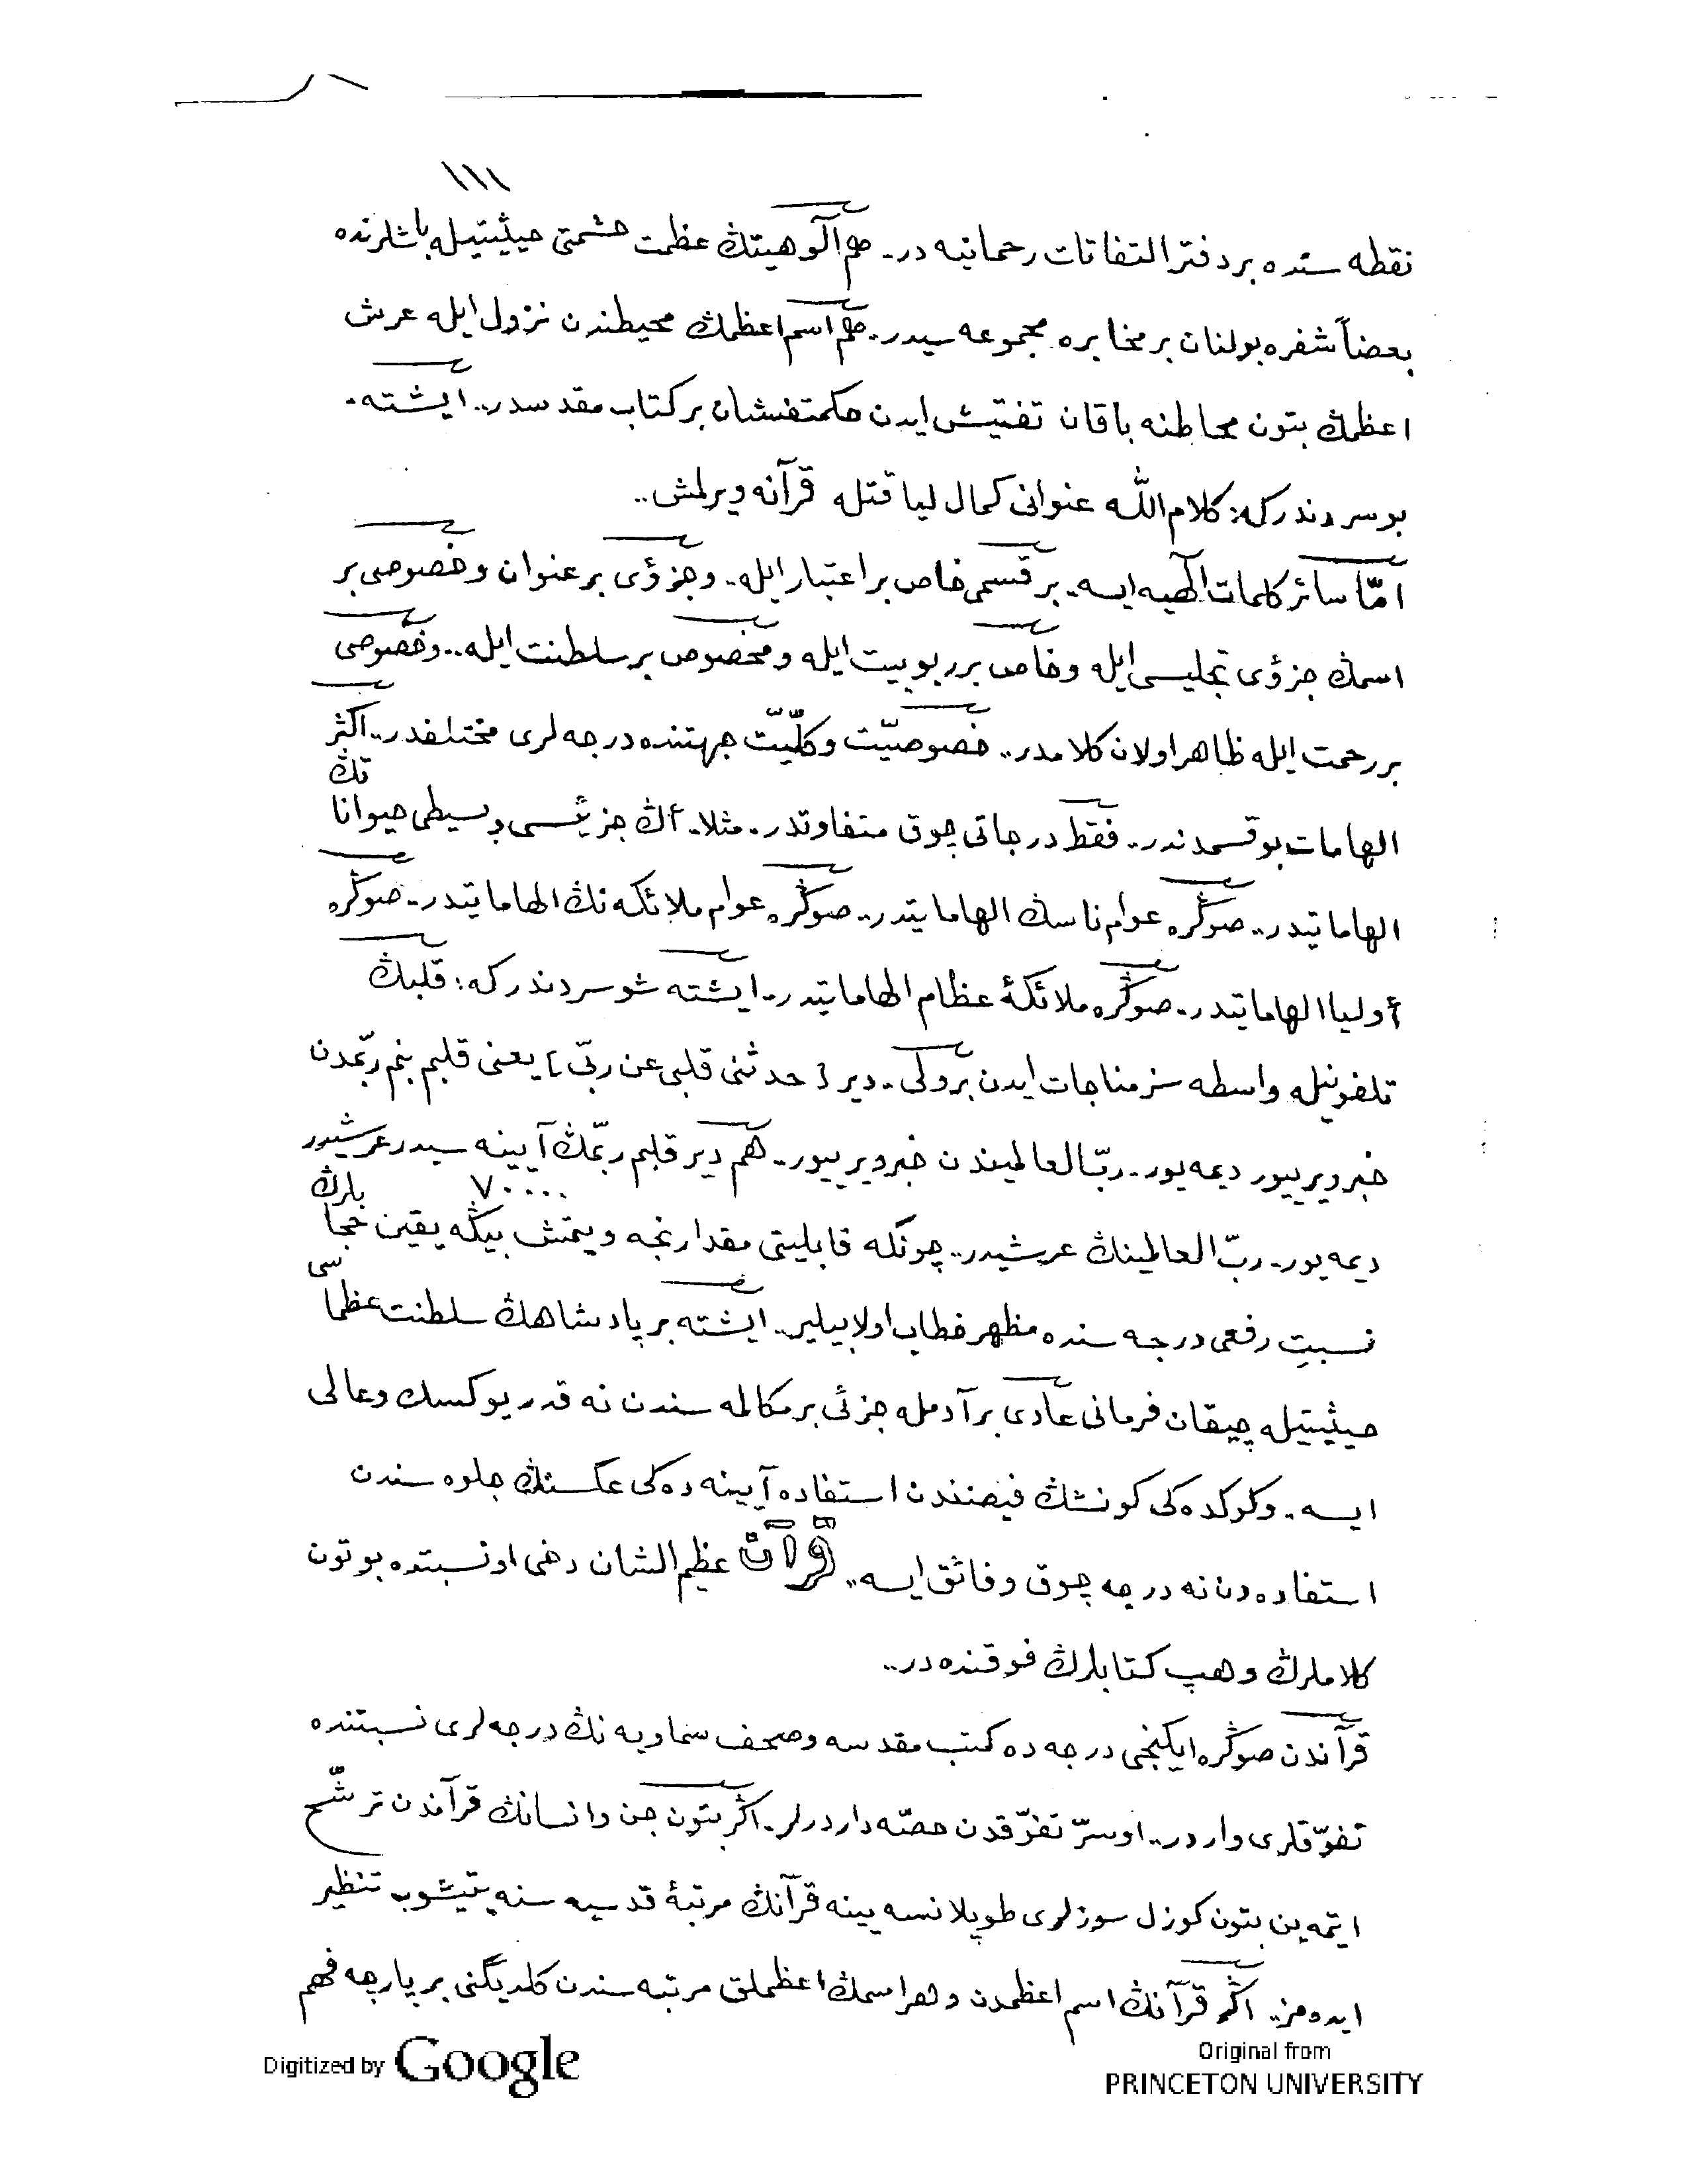 ١١١
نقطه سنده بر دفتر التفاتات رحمانیه در.. هم الوهیتڭ عظمت حشمتی حیثیتیله باشلرنده
بعضاً شفره بولنان بر مخابره مجموعه سیدر.. هم اسم اعظمڭ محیطندن نزول ایله عرش
اعظمڭ بتون محاطنه باقان تفتیش ایدن حکمتفشان بر کتاب مقدسدر.. ایشته.
بو سردندر که: کلام الله عنوانی کمال لیاقتله قرآنه ویرلمش..
امّا سائر کلمات الٰهیه ایسه.. بر قسمی خاص بر اعتبار ایله.. وجزؤی بر عنوان وخصوصی بر
اسمڭ جزؤی تجلیسی ایله وخاص بر ربوبیت ایله ومخصوص بر سلطنت ایله.. وخصوصی
بر رحمت ایله ظاهر اولان کلامدر.. خصوصیّت وکلّیّت جهتنده درجه لری مختلفدر.. اکثر
الهامات بو قسمدندر.. فقط درجاتی چوق متفاوتدر.. مثلا.. أڭ جزئیسی وبسیطی حیواناتڭ
الهاماتیدر.. صوڭره عوام ناسڭ الهاماتیدر.. صوڭره عوام ملائکه نڭ الهاماتیدر.. صوڭره
أولیا الهاماتیدر.. صوڭره ملائکۀ عظام الهاماتیدر.. ایشته شو سردندر که: قلبڭ
تلفونیله واسطه سز مناجات ایدن بر ولی.. دیر [حدثنی قلبی عن ربّی] یعنی قلبم بنم ربّمدن
خبر ویرییور دیمه یور.. ربّ العالمیندن خبر ویرییور.. هم دیر قلبم ربّمڭ آیینه سیدر عرشیدر
٧٠٠٠٠
دیمه یور.. ربّ العالمینڭ عرشیدر.. چونکه قابلیتی مقدارنجه ویتمش بیڭه یقین حجابلرڭ
نسبت رفعی درجه سنده مظهر خطاب اولابیلیر.. ایشته بر پادشاهڭ سلطنت عظماسی
حیثیتیله چیقان فرمانی عادی بر آدمله جزئی بر مکالمه سندن نه قدر یوکسک وعالی
ایسه.. وکوکده کی کونشڭ فیضندن استفاده آیینه ده کی عکسنڭ جلوه سندن
استفاده دن نه درجه چوق وفائق ایسه.. قرآن عظیم الشان دخی او نسبتده بوتون
کلاملرڭ وهپ کتابلرڭ فوقنده در..
قرآندن صوڭره ایکنجی درجه ده کتب مقدسه وصحف سماویه نڭ درجه لری نسبتنده
تفوّقلری واردر.. او سرّ تفوّقدن حصّه داردرلر.. اڭر بتون جن وانسانڭ قرآندن ترشّح
ایتمه ین بتون کوزل سوزلری طوپلانسه یینه قرآنڭ مرتبۀ قدسیه سنه یتیشوب تنظیر
ایده مز.. اڭر قرآنڭ اسم اعظمدن وهر اسمڭ اعظملق مرتبه سندن کلدیگنی بر پارچه فهم
Digitized by Google
Original from
PRINCETON UNIVERSITY